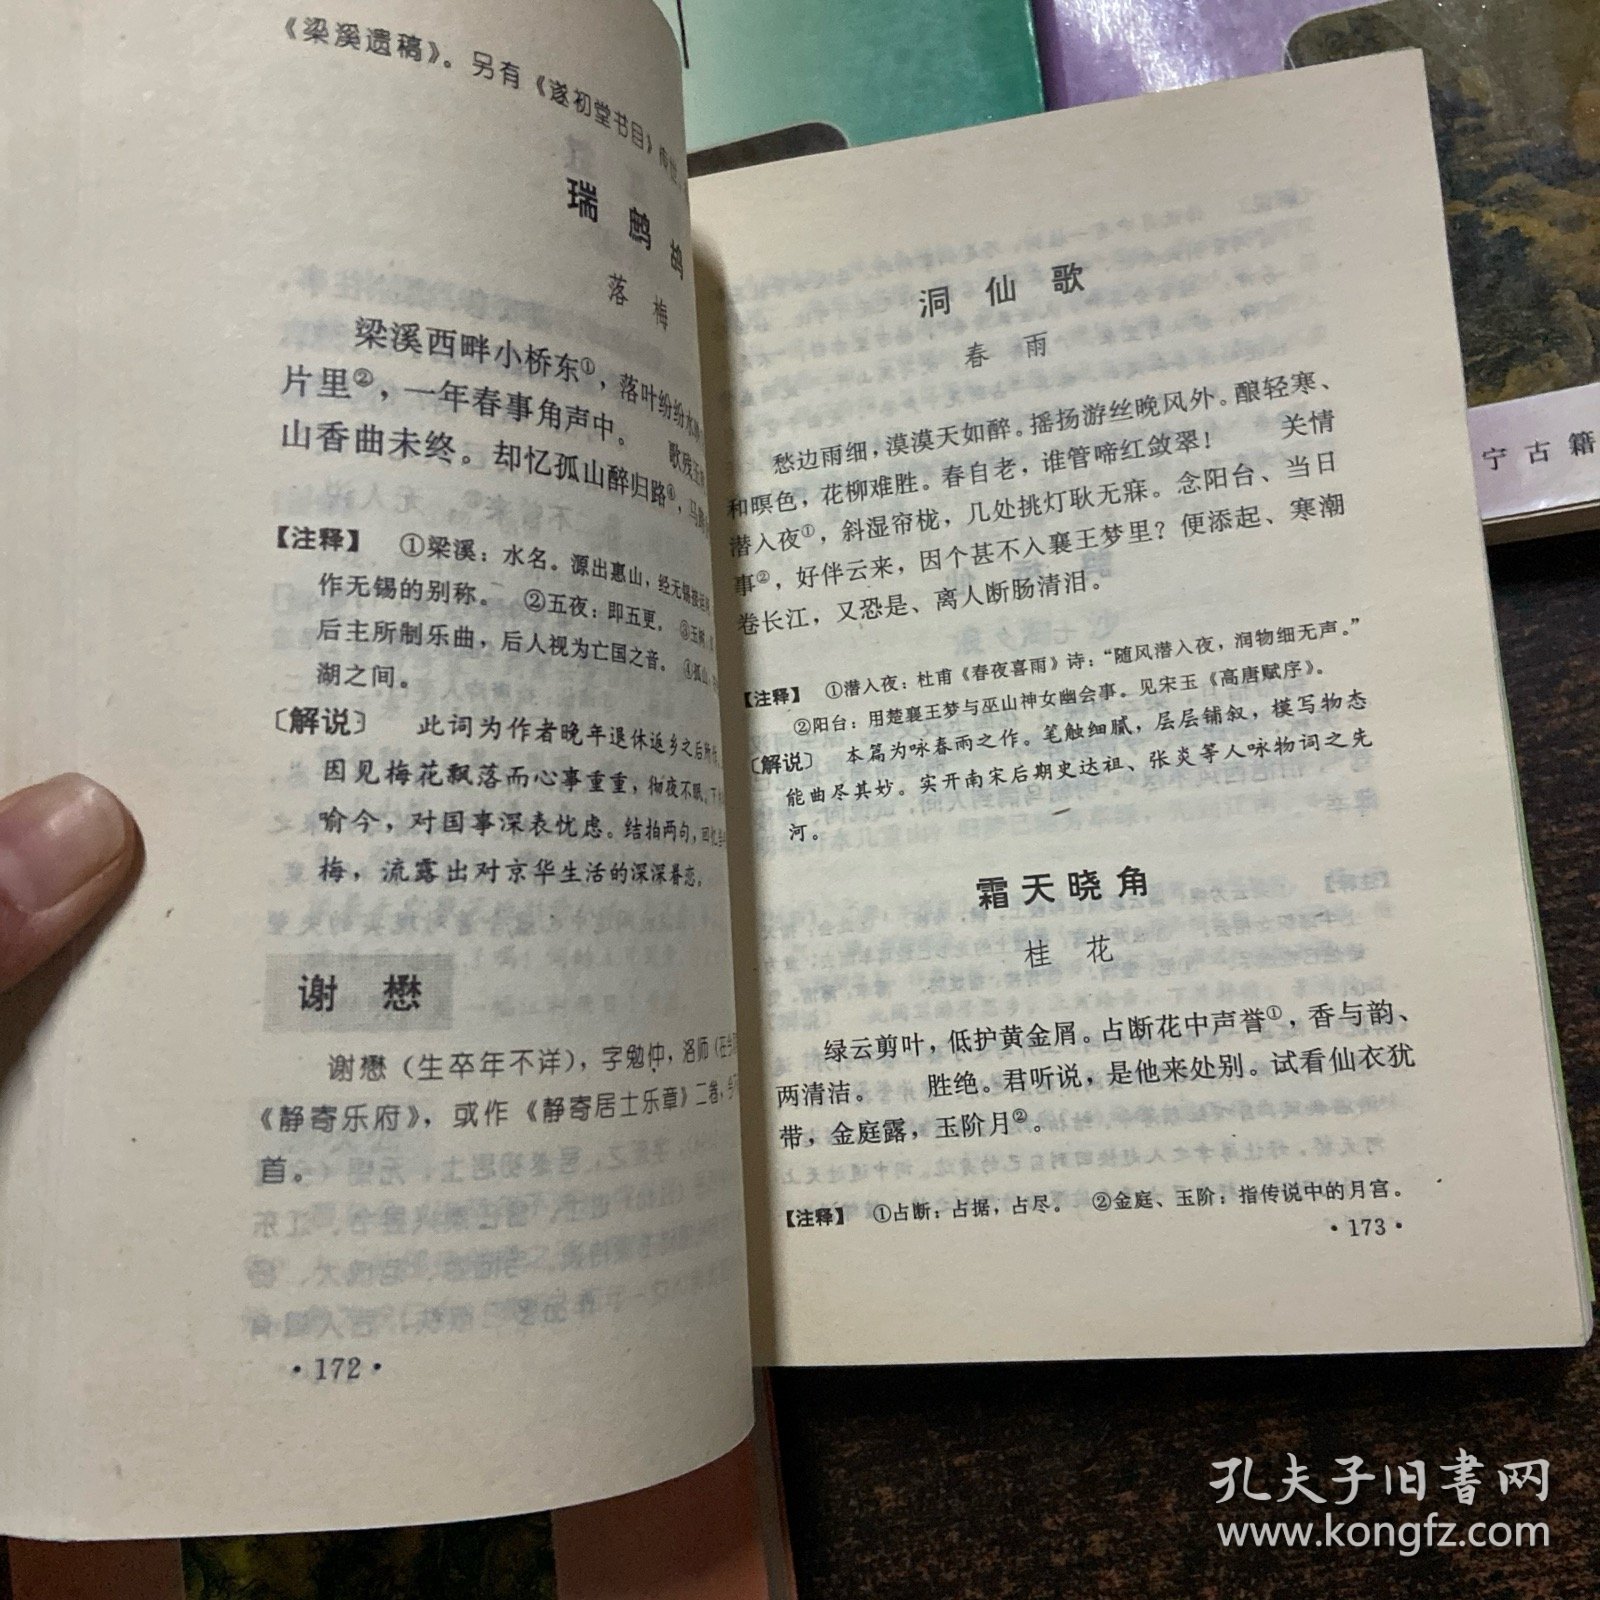 《梁溪遗稿》。另有《遂初堂书目》传世
瑞鹧鸪
落梅
梁溪西畔小桥东①，落叶纷纷水
片里②，一年春事角声中。 歌残玉
山香曲未终。却忆孤山醉归路④，马
【注释】 ①梁溪：水名。源出惠山，经无锡
作无锡的别称。 ②五夜：即五更。 ③玉树
后主所制乐曲，后人视为亡国之音。 ④孤山
湖之间。
〔解说〕 此词为作者晚年退休返乡之后所
因见梅花飘落而心事重重，彻夜不眠。下
喻今，对国事深表忧虑。结拍两句，回忆
梅，流露出对京华生活的深深眷恋。
谢懋
谢懋（生卒年不详），字勉仲，洛师（在今
《静寄乐府》，或作《静寄居士乐章》二卷，今
首。
·172·
洞仙歌
春雨
愁边雨细，漠漠天如醉。摇扬游丝晚风外。酿轻寒、
和暝色，花柳难胜。春自老，谁管啼红敛翠！ 关情
潜入夜①，斜湿帘栊，几处挑灯耿无寐。念阳台、当日
事②，好伴云来，因个甚不入襄王梦里？便添起、寒潮
卷长江，又恐是、离人断肠清泪。
【注释】 ①潜入夜：杜甫《春夜喜雨》诗：“随风潜入夜，润物细无声。”
②阳台：用楚襄王梦与巫山神女幽会事。见宋玉《高唐赋序》。
〔解说〕 本篇为咏春雨之作。笔触细腻，层层铺叙，模写物态
能曲尽其妙。实开南宋后期史达祖、张炎等人咏物词之先
河。
霜天晓角
桂花
绿云剪叶，低护黄金屑。占断花中声誉①，香与韵、
两清洁。 胜绝。君听说，是他来处别。试看仙衣犹
带，金庭露，玉阶月②。
【注释】 ①占断：占据，占尽。 ②金庭、玉阶：指传说中的月宫。
·173·
宁古籍
孔夫子旧书网
www.kongfz.com